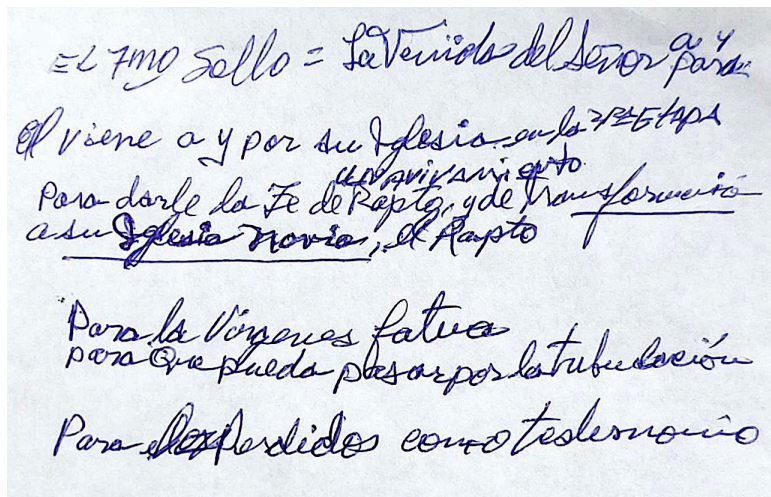 EL 7MO Sello = La Venida del Señor a y para
El viene a y por su Iglesia en la 3ra Etapa
un avivamiento
para darle la Fe de Rapto, y de transformació
a su Iglesia novia, el Rapto
Para la Vírgenes fatua
para que pueda pasar por la tribulación
Para los Perdidos como testimonio